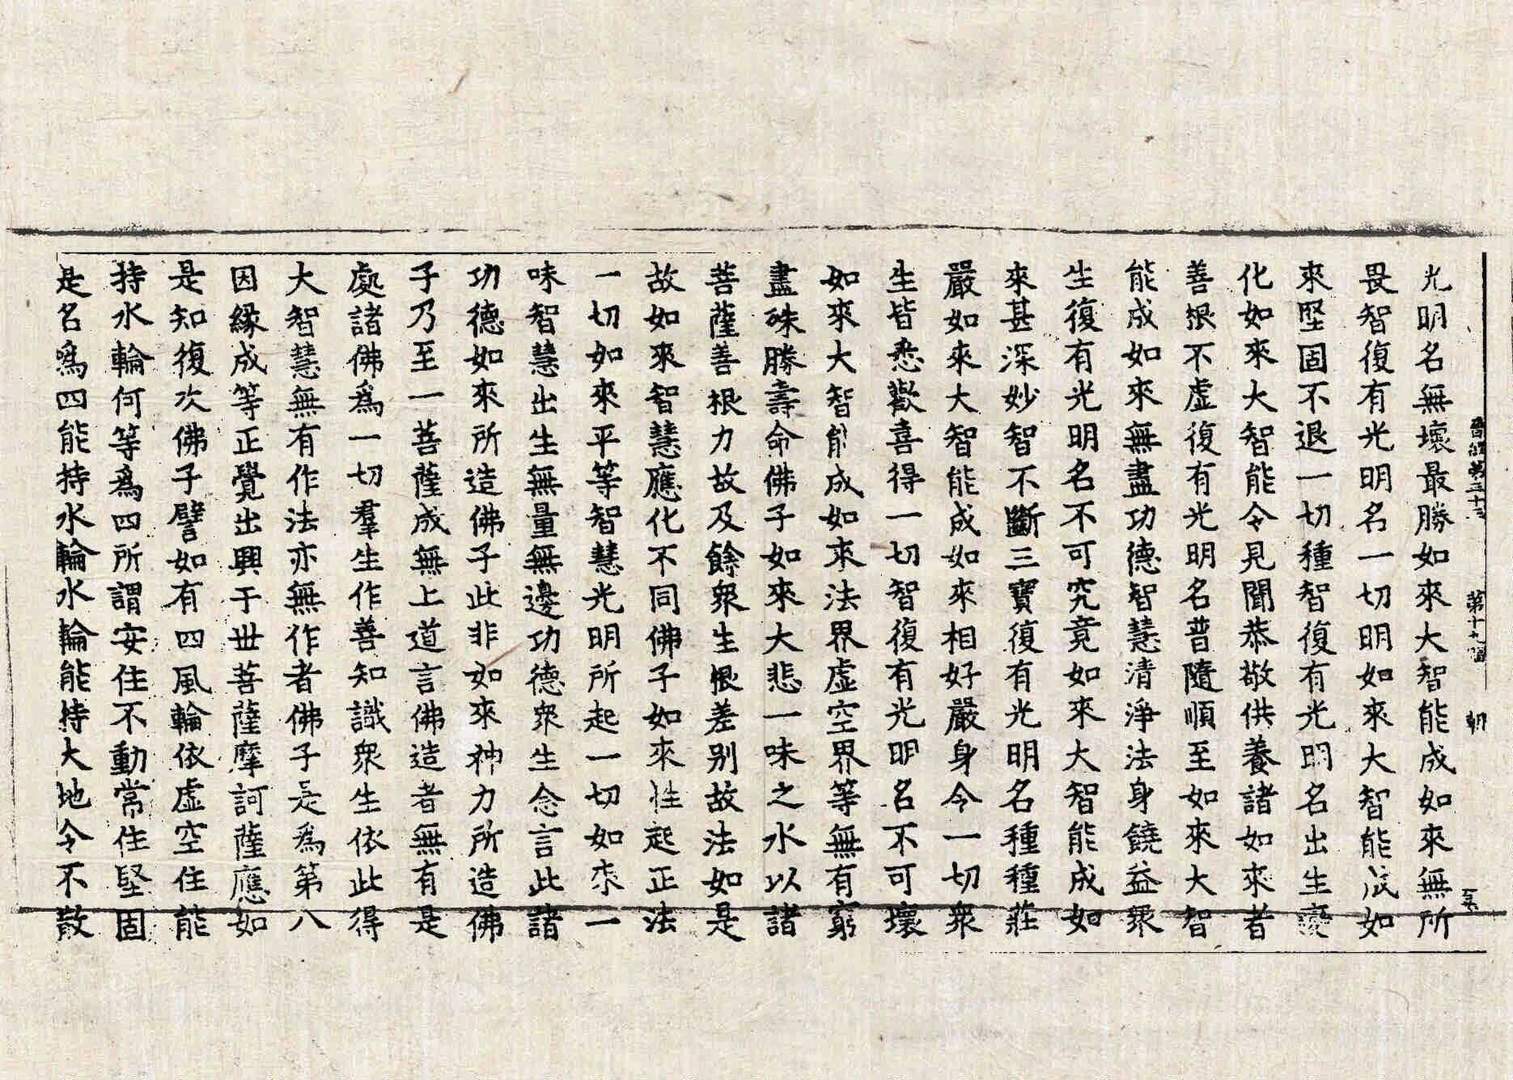 晉經第三十三 第十九幅 朝
光明名無壞最勝如來大智能成如來無所
畏智復有光明名一切明如來大智能成如
來堅固不退一切種智復有光明名出生變
化如來大智能令見聞恭敬供養諸如來者
善根不虛復有光明名普隨順至如來大智
能成如來無盡功德智慧清淨法身饒益衆
生復有光明名不可究竟如來大智能成如
來甚深妙智不斷三寶復有光明名種種莊
嚴如來大智能成如來相好嚴身令一切衆
生皆悉歡喜得一切智復有光明名不可壞
如來大智能成如來法界虛空界等無有窮
盡殊勝壽命佛子如來大悲一味之水以諸
菩薩善根力故及餘衆生根差別故法如是
故如來智慧應化不同佛子如來性起正法
一切如來平等智慧光明所起一切如來一
味智慧出生無量無邊功德衆生念言此諸
功德如來所造佛子此非如來神力所造佛
子乃至一菩薩成無上道言佛造者無有是
處諸佛爲一切羣生作善知識衆生依此得
大智慧無有作法亦無作者佛子是爲第八
因緣成等正覺出興于世菩薩摩訶薩應如
是知復次佛子譬如有四風輪依虛空住能
持水輪何等爲四所謂安住不動常住堅固
是名爲四能持水輪水輪能持大地令不散